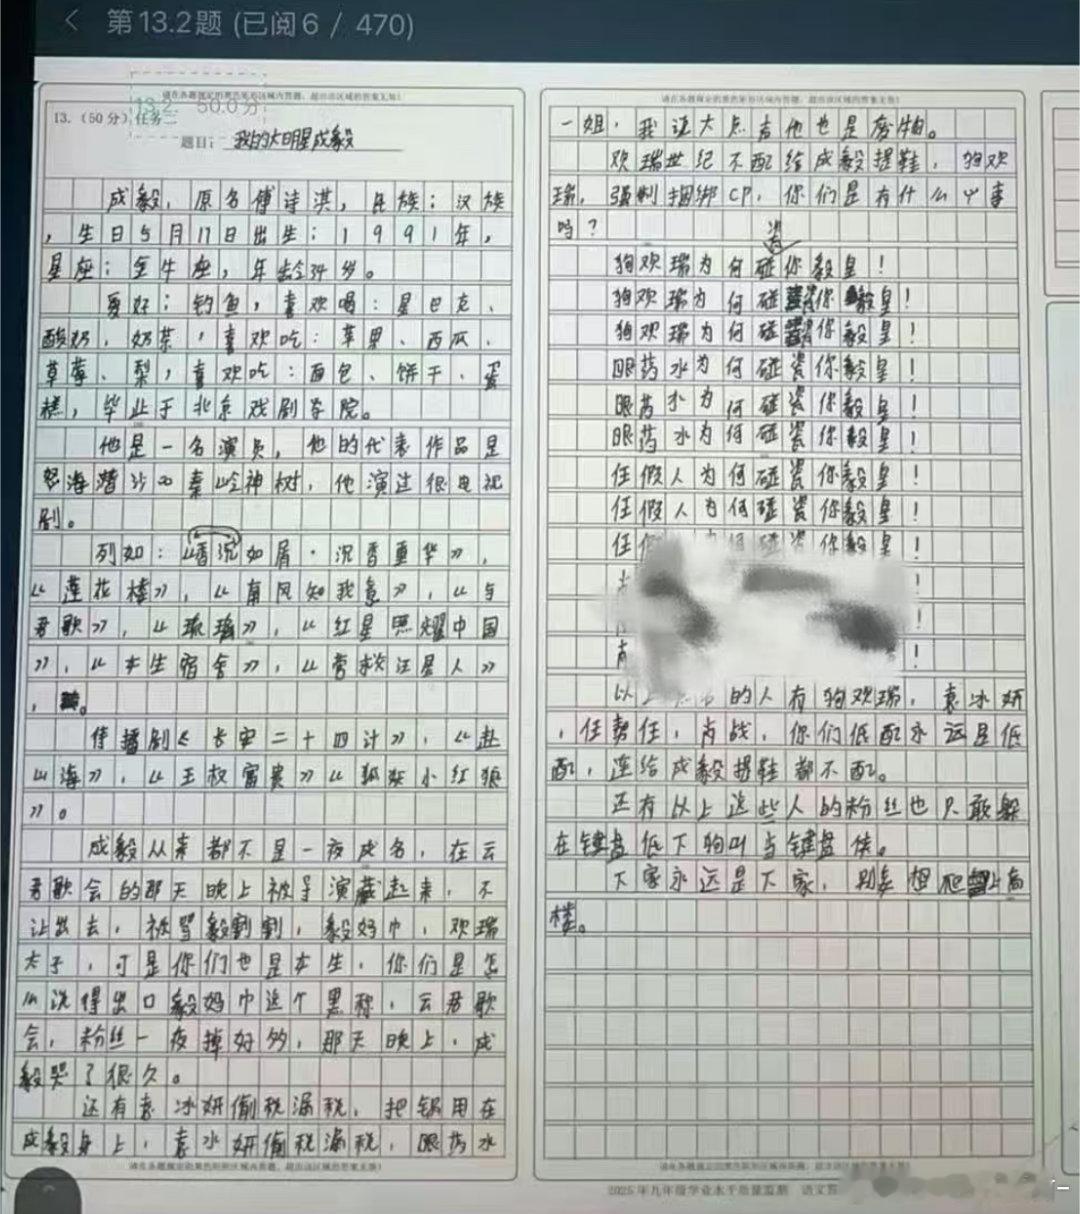 第13.2题 (已阅6 / 470)
请在各题规定的黑色矩形区域内答题，超出该区域的答案无效！
13.2 50.0分
13.（50分）任务二
题目：我的大明星成毅
成毅，原名傅诗淇，民族：汉族
，生日5月17日出生：1991年，
星座：金牛座，年龄34岁。
爱好：钓鱼，喜欢喝：星巴克、
酸奶、奶茶，喜欢吃：苹果、西瓜、
草莓、梨，喜欢吃：面包、饼干、蛋
糕，毕业于北京戏剧学院。
他是一名演员，他的代表作品是
怒海潜沙∞秦岭神树，他演过很电视
剧。
列如：《香沉如屑·沉香重华》，
《莲花楼》，《南风知我意》，《与
君歌》，《琉璃》，《红星照耀中国
》，《女生宿舍》，《营救汪星人》
，。
待播剧《长安二十四计》，《赴
山海》，《王权富贵》《狐妖小红狼
》。
成毅从来都不是一夜成名，在云
君歌会的那天晚上被导演藏起来，不
让出去，被骂毅割割，毅妈巾，欢瑞
太子，可是你们也是女生，你们是怎
么说得出口毅妈巾这个黑称，云君歌
会，粉丝一夜掉好多，那天晚上，成
毅哭了很久。
还有袁冰妍偷税漏税，把锅甩在
成毅身上，袁冰妍偷税漏税，眼药水
请在各题规定的黑色矩形区域内答题，超出该区域的答案无效！
请在各题规定的黑色矩形区域内答题，超出该区域的答案无效！
一姐，我证大点吉他也是废物。
欢瑞世纪不配给成毅提鞋，狗欢
瑞，强制捆绑CP，你们是有什么屮事
吗？
狗欢瑞为何碰瓷你毅皇！
狗欢瑞为何碰你毅皇！
狗欢瑞为何碰你毅皇！
眼药水为何碰瓷你毅皇！
眼药水为何碰瓷你毅皇！
眼药水为何碰瓷你毅皇！
任假人为何碰瓷你毅皇！
任假人为何碰瓷你毅皇！
任假为何碰瓷你毅皇！
！
！
！
以上的人有狗欢瑞，袁冰妍
，任帮任，肖战，你们低配永远是低
配，连给成毅提鞋都不配。
还有以上这些人的粉丝也只敢躲
在键盘低下狗叫当键盘侠。
下家永远是下家，别妄想爬上高
楼。
请在各题规定的黑色矩形区域内答题，超出该区域的答案无效！
2025年九年级学业水平质量监测 语文答